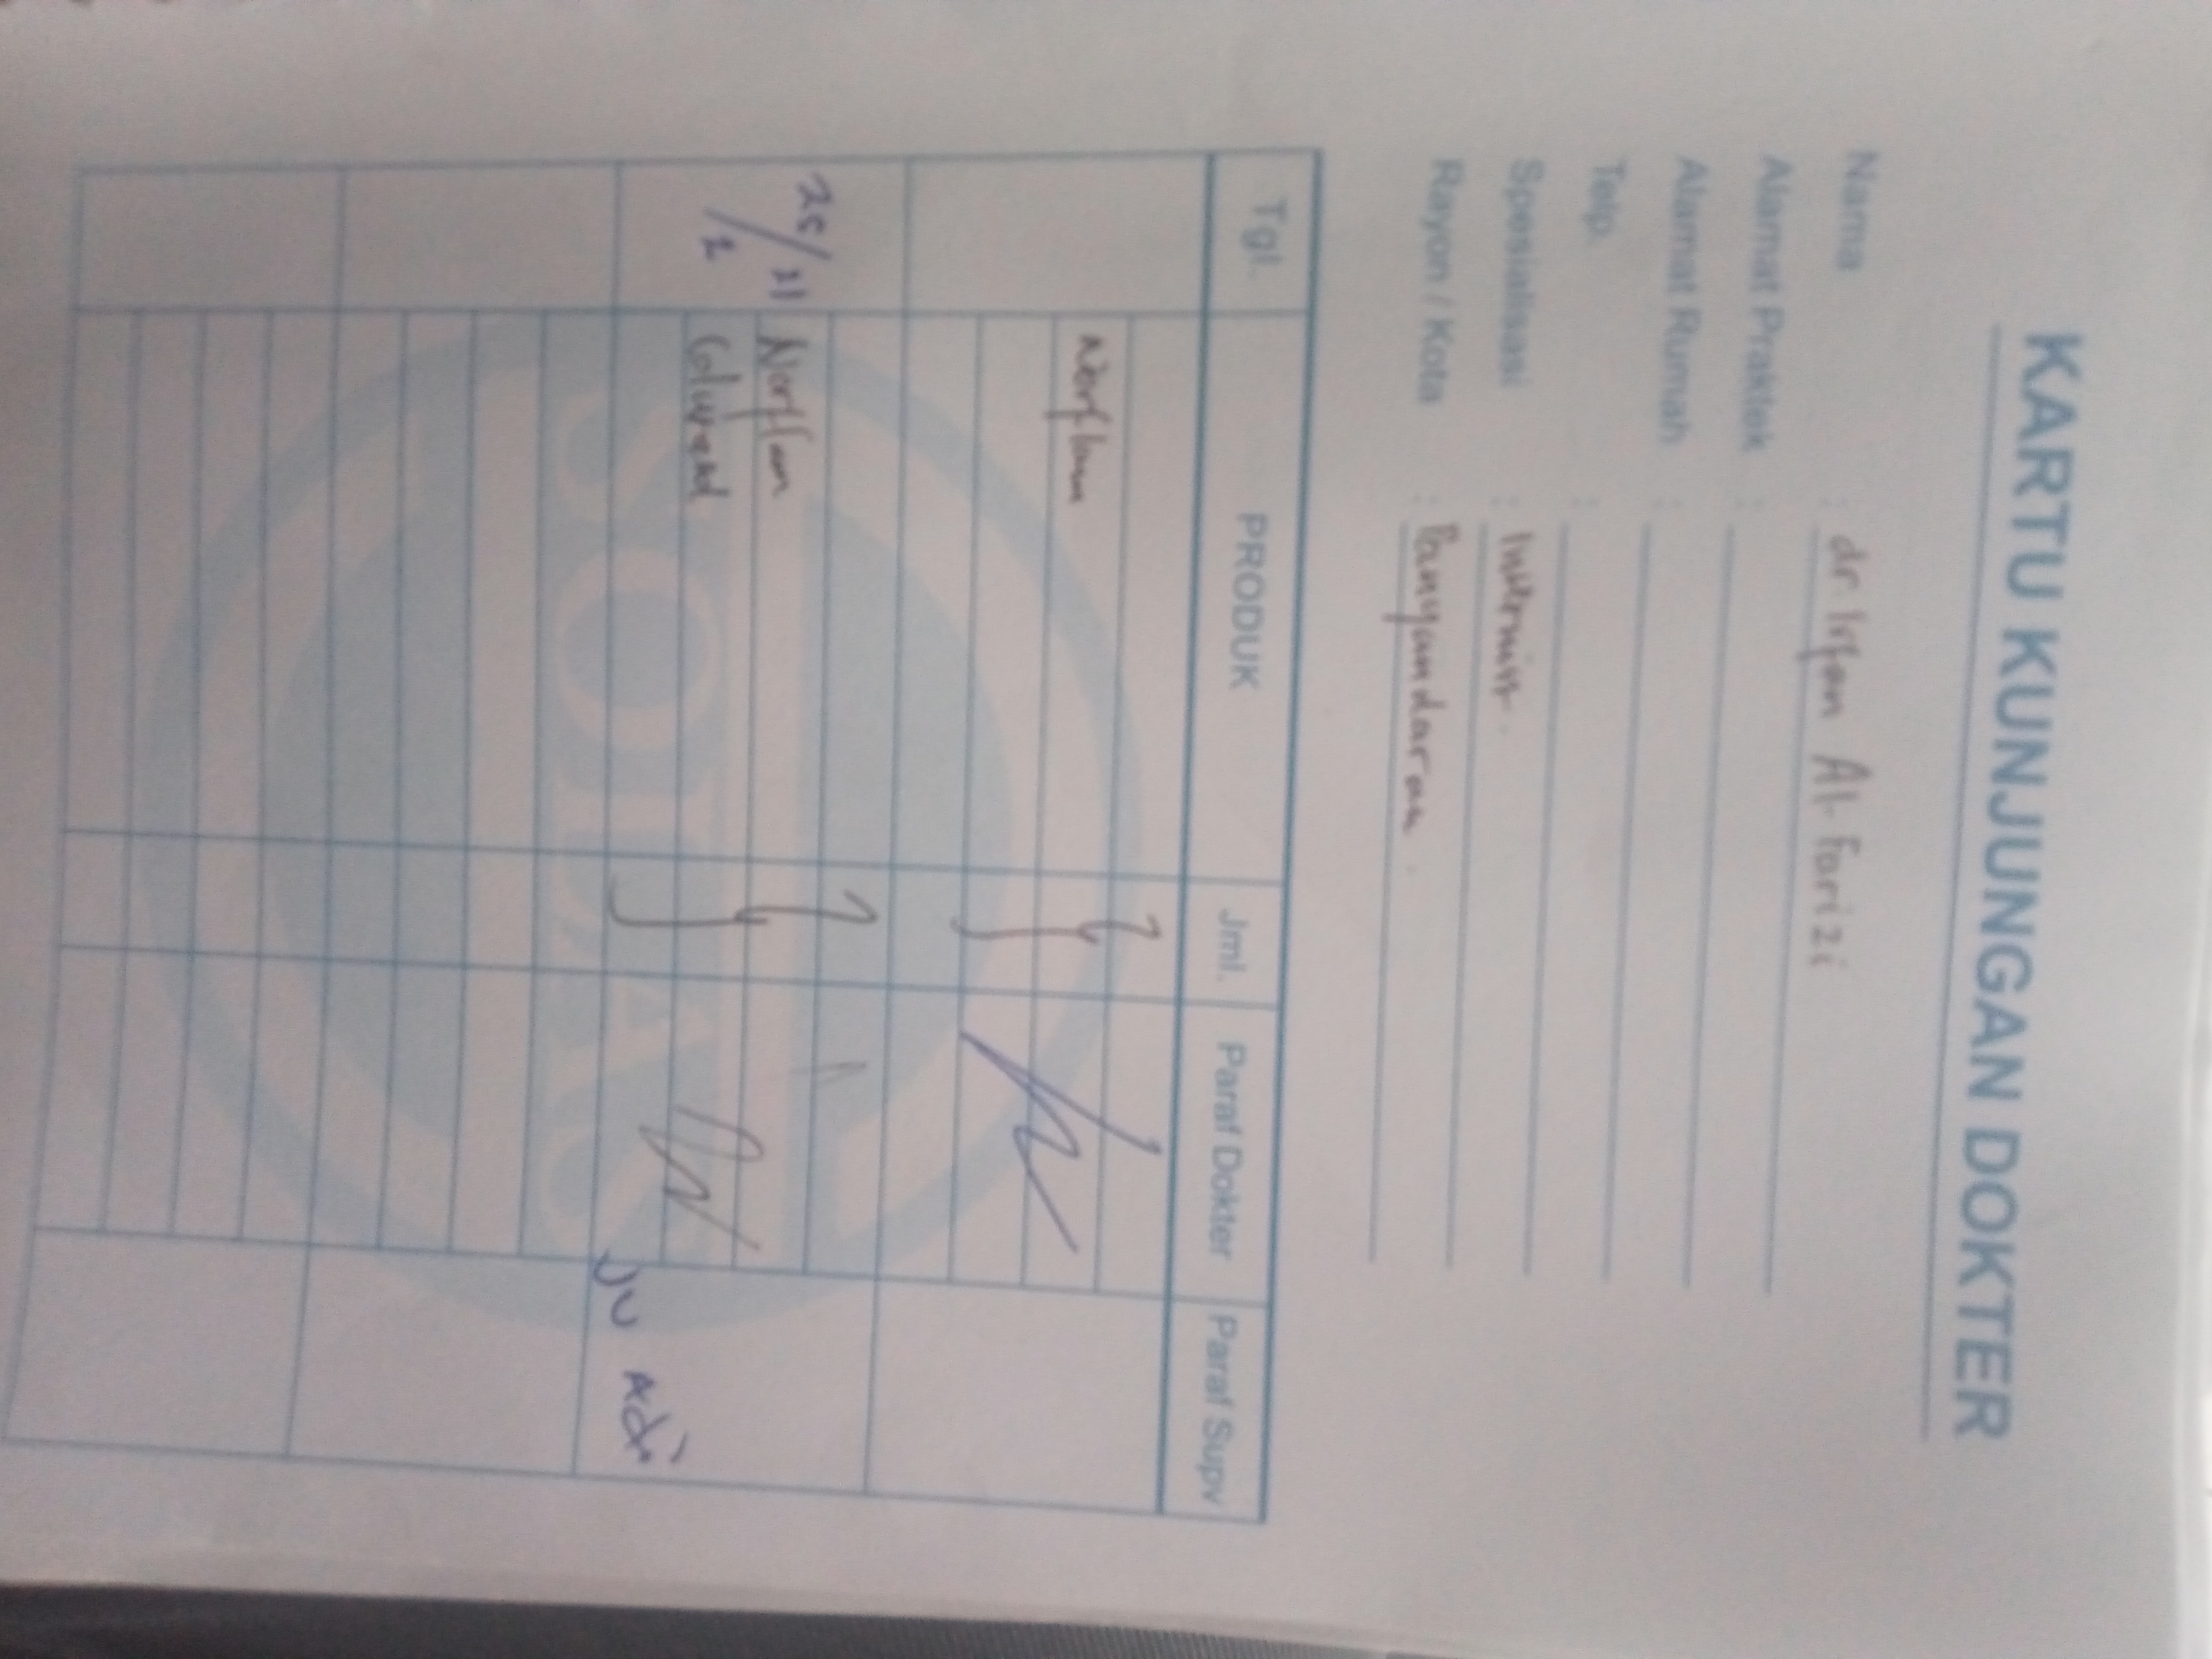 KARTU KUNJUNGAN DOKTER
Nama : dr. Irfan Al-Farizi
Alamat Praktek :
Alamat Rumah :
Telp. :
Spesialisasi : Internist.
Rayon / Kota : Pangandaran.
Tgl. PRODUK Jml. Paraf Dokter Paraf Supv
Norflam
25/2 21 Norflam
SOLAS